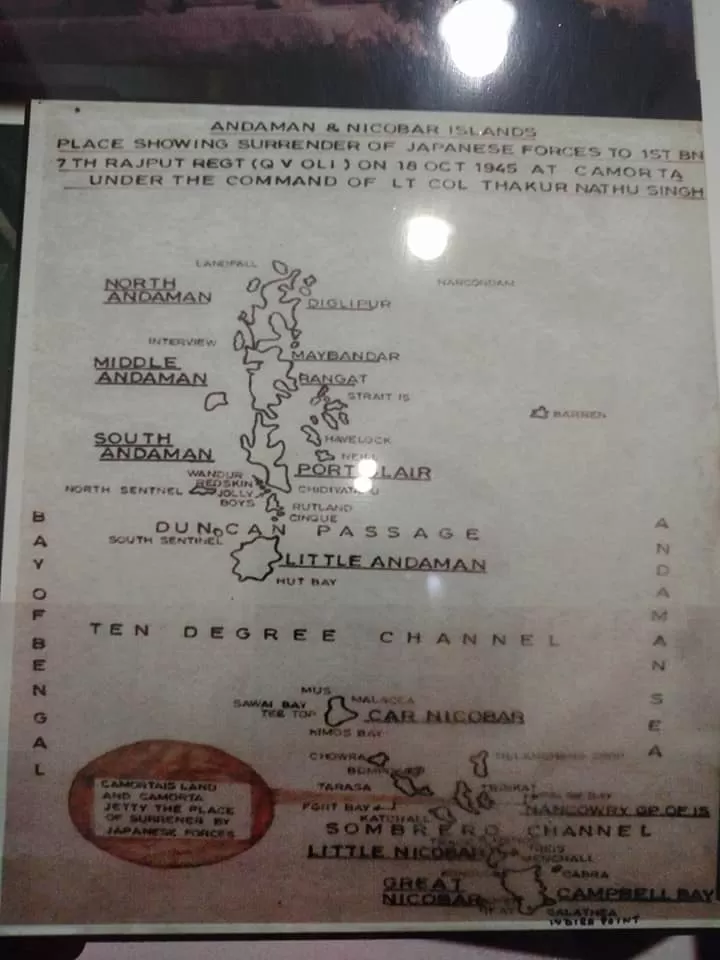 ANDAMAN & NICOBAR ISLANDS
PLACE SHOWING SURRENDER OF JAPANESE FORCES TO 1ST BN
7 TH RAJPUT REGT (Q V OLI) ON 18 OCT 1945 AT CAMORTA
UNDER THE COMMAND OF LT COL THAKUR NATHU SINGH
LANDFALL
NARCONDAM
NORTH
ANDAMAN
DIGLIPUR
INTERVIEW
MAYBANDAR
MIDDLE
ANDAMAN
RANGAT
STRAIT IS
BARREN
HAVELOCK
SOUTH
ANDAMAN
NEILL
PORT BLAIR
WANDUR
REDSKIN
NORTH SENTNEL
JOLLY
BOYS
RUTLAND
CINQUE
DUNCAN PASSAGE
SOUTH SENTINEL
LITTLE ANDAMAN
HUT BAY
BAY OF BENGAL
ANDAMAN SEA
TEN DEGREE CHANNEL
MUS
MALACCA
SAWAI BAY
TEE TOP
CAR NICOBAR
KIMOS BAY
CHOWRA
TARASA
CAMORTAIS LAND
AND CAMORTA
JETTY THE PLACE
OF SURRENER BY
JAPANESE FORCES
FORT BAY
NANCOWRY GP OF IS
KATCHALL
SOMBRERO CHANNEL
LITTLE NICOBAR
CABRA
GREAT
NICOBAR
CAMPBELL BAY
GALATHEA
INDIRA POINT